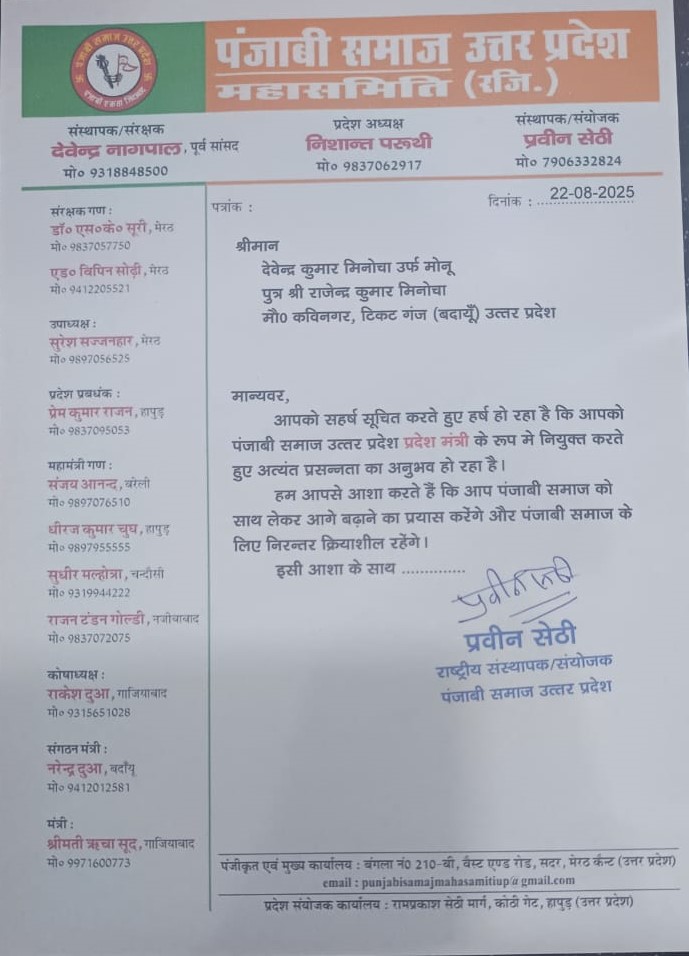 पंजाबी समाज उत्तर प्रदेश
पंजाबी समाज उत्तर प्रदेश
महासमिति (रजि.)
संस्थापक/संरक्षक
देवेन्द्र नागपाल, पूर्व सांसद
मो० 9318848500
प्रदेश अध्यक्ष
निशान्त परूथी
मो० 9837062917
संस्थापक/संयोजक
प्रवीन सेठी
मो० 7906332824
संरक्षक गण :
डॉ० एस०के० सूरी, मेरठ
मो० 9837057750
एड० विपिन सोढ़ी, मेरठ
मो० 9412205521
उपाध्यक्ष :
सुरेश सज्जनहार, मेरठ
मो० 9897056525
प्रदेश प्रबधंक :
प्रेम कुमार राजन, हापुड़
मो० 9837095053
महामंत्री गण :
संजय आनन्द, बरेली
मो० 9897076510
धीरज कुमार चुघ, हापुड़
मो० 9897955555
सुधीर मल्होत्रा, चन्दौसी
मो० 9319944222
राजन टंडन गोल्डी, नजीबाबाद
मो० 9837072075
कोषाध्यक्ष :
राकेश दुआ, गाजियाबाद
मो० 9315651028
संगठन मंत्री :
नरेन्द्र दुआ, बदाँयू
मो० 9412012581
मंत्री :
श्रीमती ऋचा सूद, गाजियाबाद
मो० 9971600773
पत्रांक :
दिनांक : 22-08-2025
श्रीमान
देवेन्द्र कुमार मिनोचा उर्फ मोनू
पुत्र श्री राजेन्द्र कुमार मिनोचा
मौ0 कविनगर, टिकट गंज (बदायूँ) उत्तर प्रदेश
मान्यवर,
आपको सहर्ष सूचित करते हुए हर्ष हो रहा है कि आपको
पंजाबी समाज उत्तर प्रदेश प्रदेश मंत्री के रूप मे नियुक्त करते
हुए अत्यंत प्रसन्नता का अनुभव हो रहा है।
हम आपसे आशा करते हैं कि आप पंजाबी समाज को
साथ लेकर आगे बढ़ाने का प्रयास करेंगे और पंजाबी समाज के
लिए निरन्तर क्रियाशील रहेंगे।
इसी आशा के साथ ..............
प्रवीन सेठी
प्रवीन सेठी
राष्ट्रीय संस्थापक/संयोजक
पंजाबी समाज उत्तर प्रदेश
पंजीकृत एवं मुख्य कार्यालय : बंगला नं0 210-बी, वैस्ट एण्ड रोड, सदर, मेरठ कैन्ट (उत्तर प्रदेश)
email : punjabisamajmahasamitiup@gmail.com
प्रदेश संयोजक कार्यालय : रामप्रकाश सेठी मार्ग, कोठी गेट, हापुड़ (उत्तर प्रदेश)